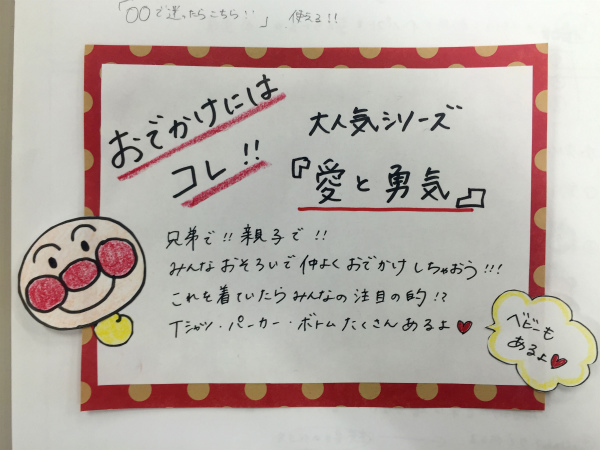 「〇〇で迷ったらこちら!!」 使える!!
おでかけには
コレ!!
大人気シリーズ
『愛と勇気』
兄弟で!! 親子で!!
みんなおそろいで仲よくおでかけしちゃおう!!!
これを着ていたらみんなの注目の的!?
Tシャツ・パーカー・ボトムたくさんあるよ♥
ベビーも
あるよ♥